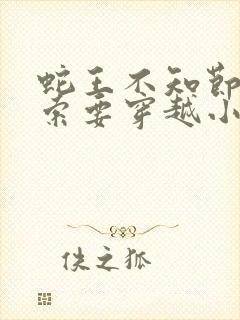 蛇王不知节
索要穿越小
佚之狐